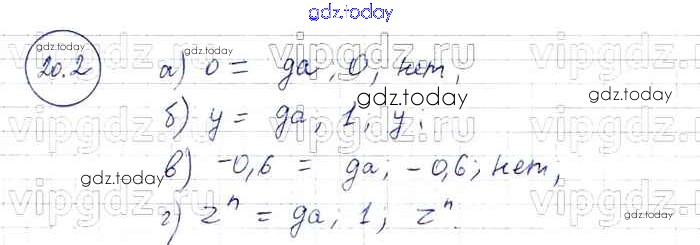 gdz.today
20.2
gdz.today
vipgdz.ru vipgdz.ru
а) 0 = да, 0, нет,
gdz.today
б) y = да, 1, y;
vipgdz.ru vipgdz.ru
в) -0,6 = да; -0,6; нет,
gdz.today
vipgdz.ru vipgdz.ru
г) zⁿ = да; 1; zⁿ.
gdz.today